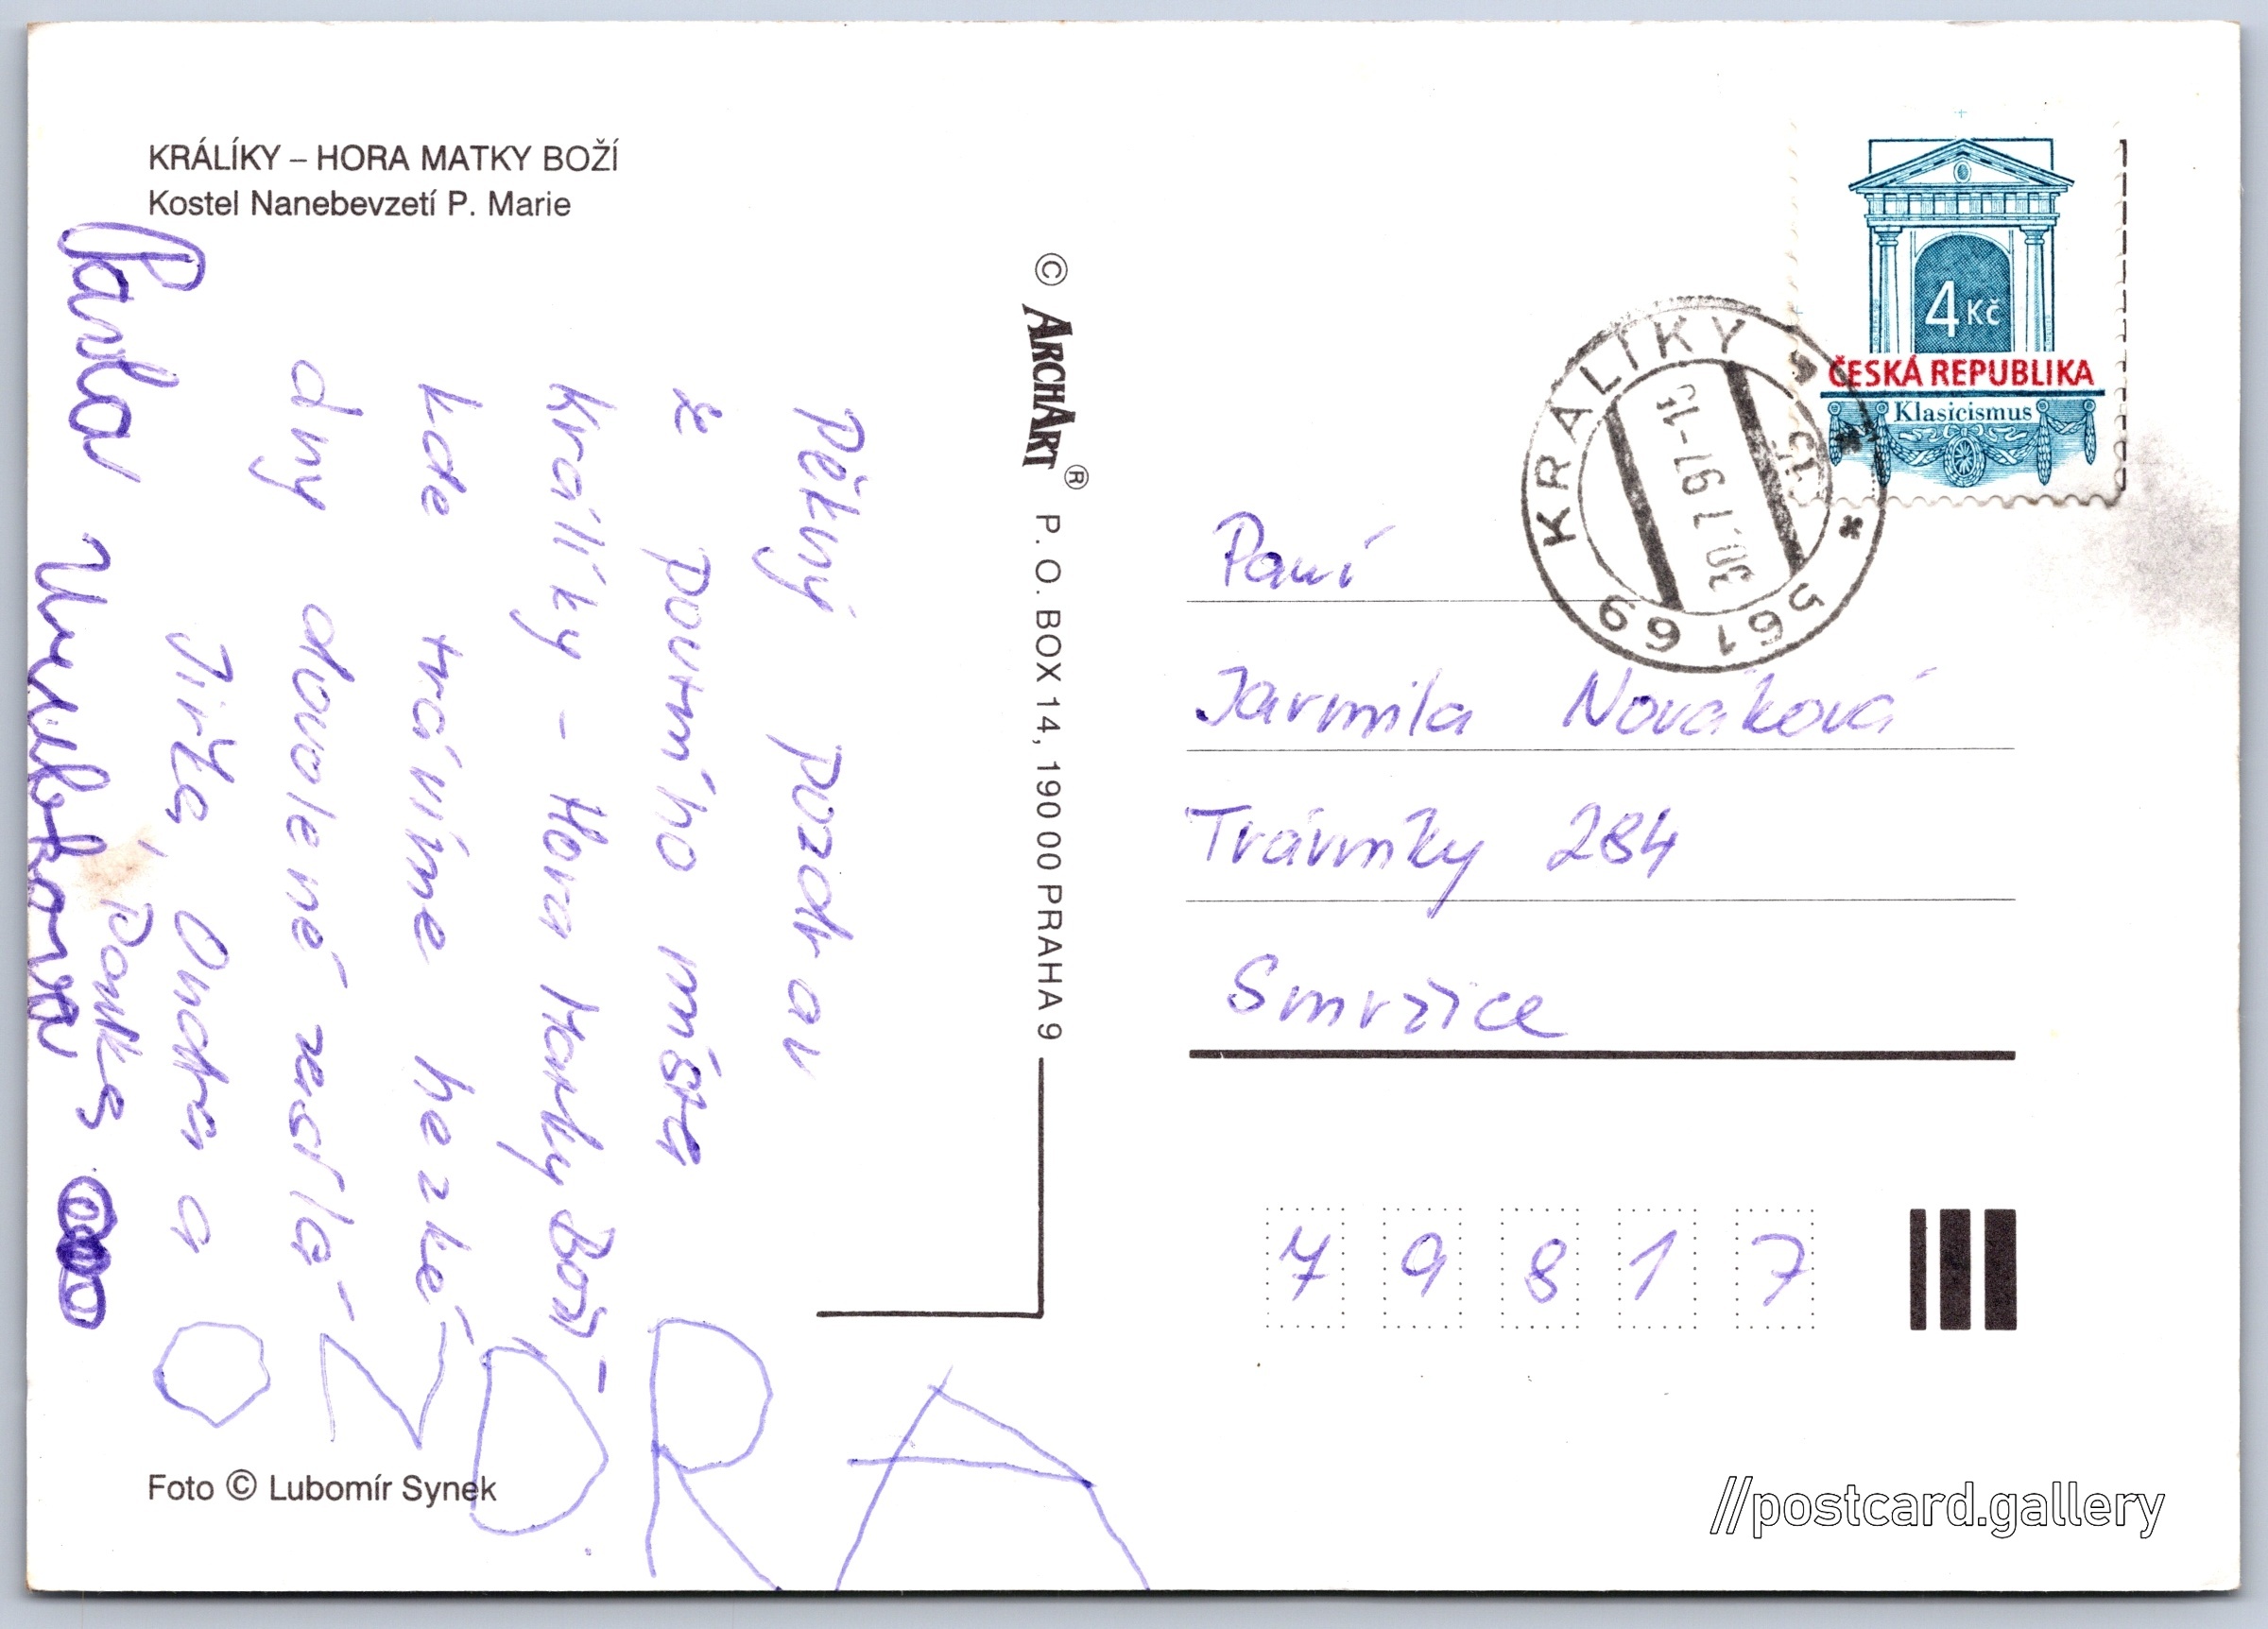 KRÁLÍKY – HORA MATKY BOŽÍ
Kostel Nanebevzetí P. Marie
Pěkný pozdrav
z poutního místa
Králíky - Hora Matky Boží -
kde trávíme hezké
dny dovolené zasílá -
Jirka, Ondra a
Pavla
O Z D R A
Foto © Lubomír Synek
© ARCHART ® P. O. BOX 14, 190 00 PRAHA 9
4 Kč
ČESKÁ REPUBLIKA
Klasicismus
KRÁLÍKY
30.7.97-15
561 69
Paní
Jarmila Nováková
Trávníky 284
Smržice
79817
//postcard.gallery